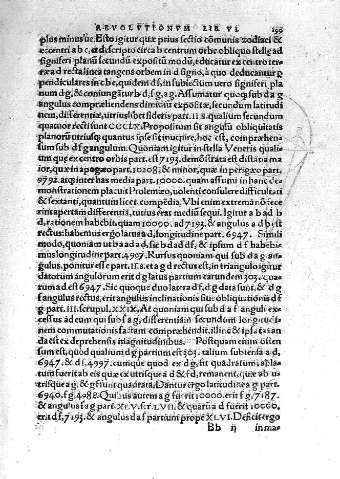 REVOLUTIONVM LIB. VI
plus minusue. Esto igitur quæ prius sectio cõmunis zodiaci &
excentri a b c, et descripto circa b centrum orbe obliquo stellæ ad
signiferi planũ secundũ expositũ modũ, educatur ex centro ter-
ræ a d recta linea tangens orbem in d signo, à quo deducantur p
pendiculares in c b e, quidem d f, in subiectum uero signiferi, pla
num d g, & coniungãtur b d, f g, a g. Assumatur quoq; sub d a g
angulus comprehendens dimidiũ expositæ, secundum latitudi
nem, differentiæ, utriuslibet sideris part. II s. qualium secundum
quatuor recti sunt CCCLX. Propositum sit angulũ obliquitatis
planorũ utriusq; quantus ipse sit inuenire, hoc est, comprehen-
sum sub d f g angulum. Quoniam igitur in stella Veneris quali-
um quæ ex centro orbis part. est 7193. demõstrata est distãtia ma
ior, quæ in apogæo part. 10208: & minor, quæ in perigæo part.
9792. atq; inter has media part. 10000. quam assumi in hanc de-
monstrationem placuit Ptolemæo, uolenti consulere difficultati
& sectanti, quantum licet, compẽdia. Vbi enim extrema nõ fece
rint apertam differentiã, tutius erat mediũ sequi. Igitur a b ad b
d, rationem habebit quam 10000. ad 7193. & angulus a d b est
rectus: habemus ergo latus a d longitudine part. 6947. Simili
modo, quoniam ut b a ad a d, sic b d ad d f, & ipsum d f habebi-
mus longitudine part. 4997. Rursus quoniam qui sub d a g an-
gulus, ponitur esse part. II s. et a g d rectus est, in triangulo igitur
datorum angulorum erit d g latus partium earundem 303. qua-
rum a d est 6947. Sic quoque duo latera d f, d g data sunt, & d g
f angulus rectus, erit angulus inclinationis siue obliquationis d f
g part. III. scrupul. XXIX. At quoniam qui sub d a f anguli ex-
cessus ad eum qui sub f a g, differentiam secundum longitudi-
nem commutationis factam comprehendit, illinc & ipsa taxan
da est ex deprehensis magnitudinibus. Postquam enim osten
sum est, quod qualium d g partium est 303. talium subtensa a d,
6947. & d f, 4997. cumque quod ex d g, fit quadratum ablã-
tum fuerit ab eis quæ ex utrisque a d & f d, remanent, quæ ab u-
trisque a g, & g f sunt quadrata. Dantur ergo latitudine a g part.
6940. f g 4988. Quibus autem a g fuerit 10000. erit f g, 7187.
& angulus f a g part. XLV. scr. LVII. & quarũ a d fuerit 10000.
erit d f, 7193. & angulus d a f partium prope XLVI. Deficit ergo
Bb ij in ma-